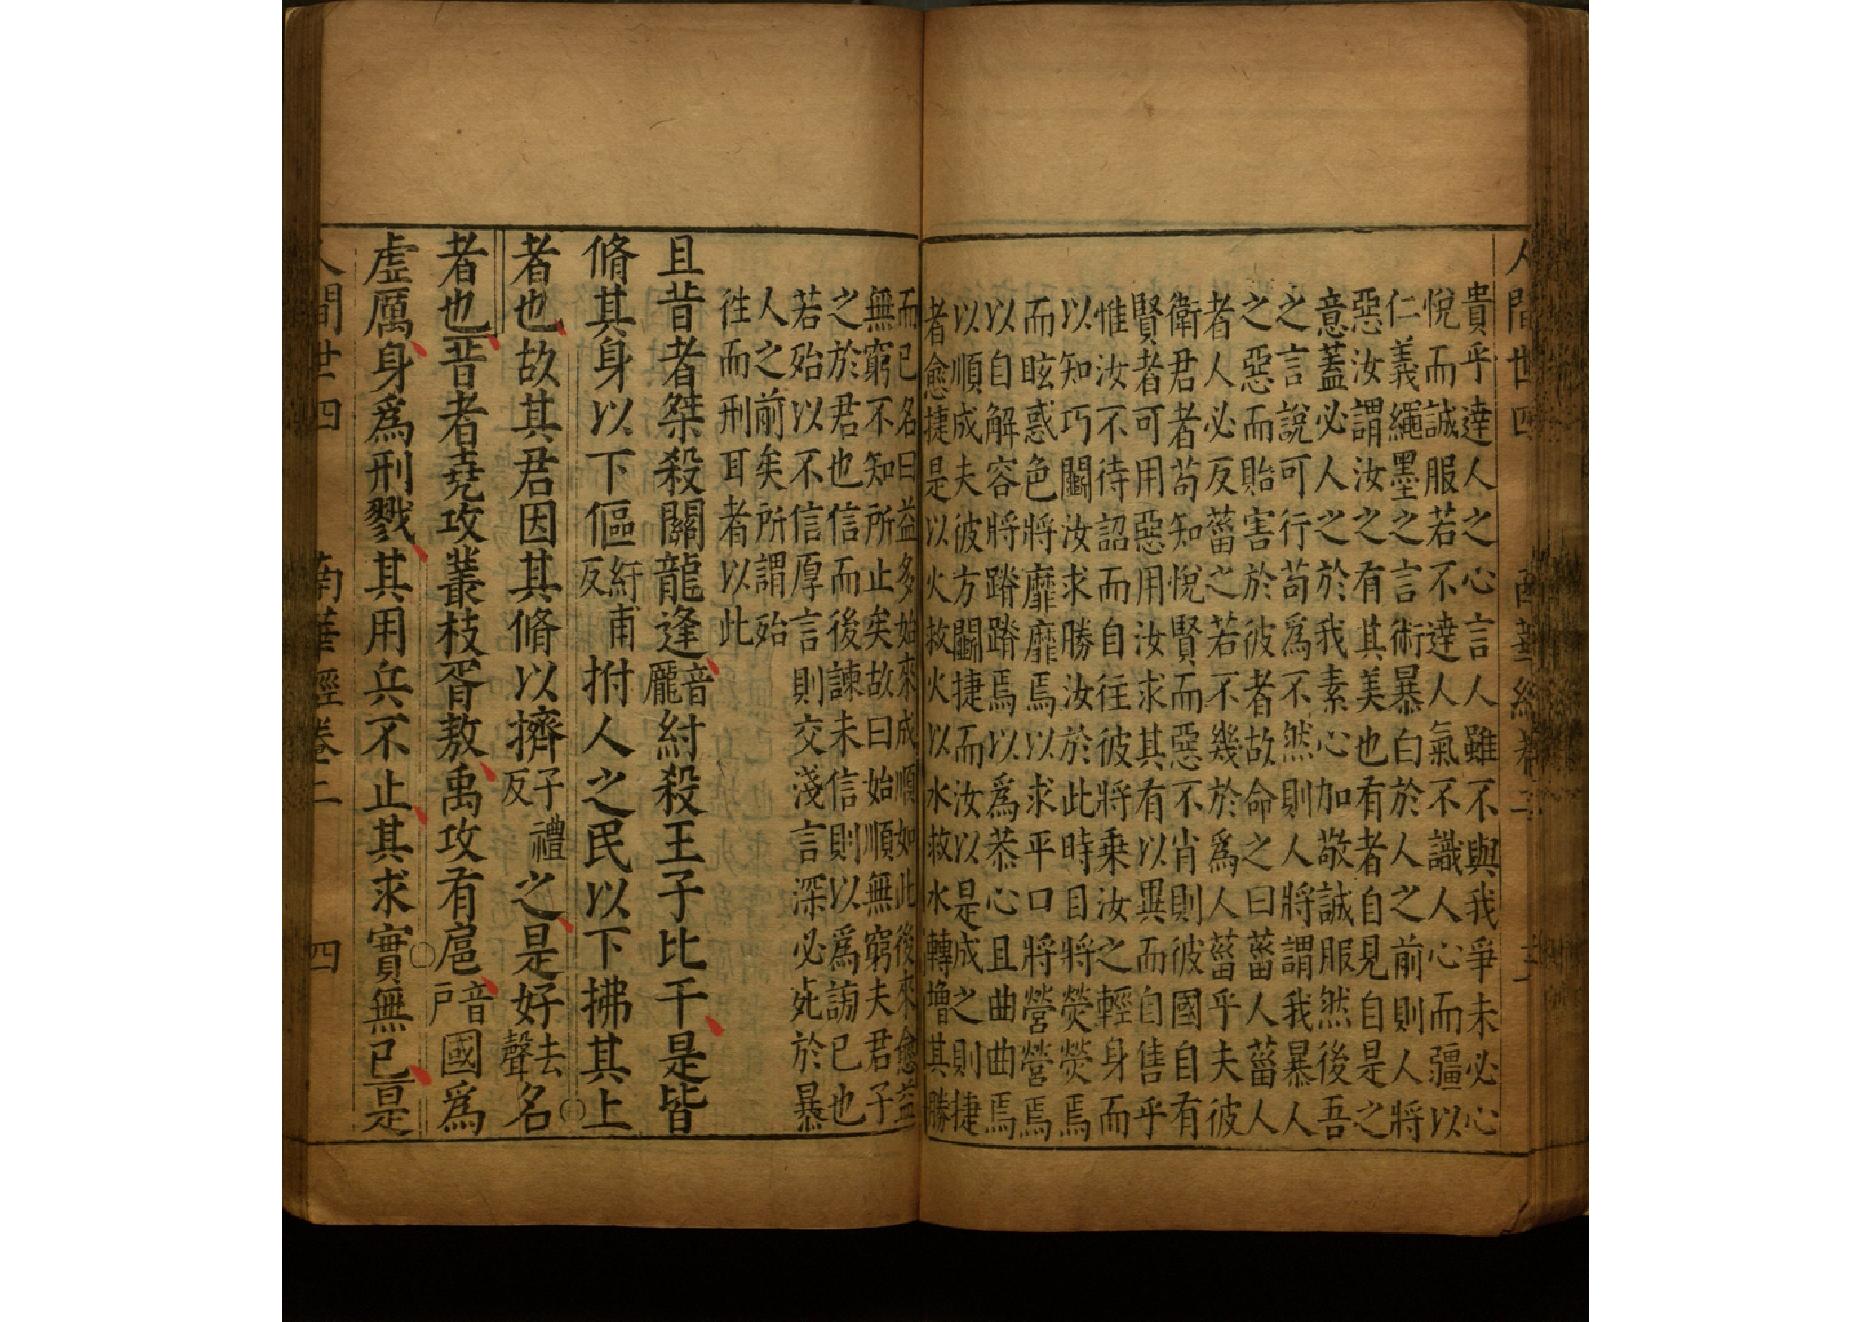 人間世四 南華經卷二
貴乎達人之心言人雖不與我爭未必心
悅而誠服若不達人氣不識人心而彊以
仁義繩墨之言術暴白於人之前則人將
惡汝謂汝之有其美也有者自見自是之
意蓋必人之於我素心加敬誠服然後吾
之言說可行苟為不然則人將謂我暴人
之惡而貽害於彼者故命之曰菑人菑人
者人必反菑之若不幾於為人菑乎夫彼
衛君者苟知悅賢而惡不肖則彼國自有
賢者可用惡用汝求其有以異而自售乎
惟汝不待詔而自往彼將乗汝之輕身而
以知巧鬬汝求勝汝於此時目將熒熒焉
而眩惑色將靡靡焉以求平口將營營焉
以自解容將蹐蹐焉以為恭心且曲曲焉
以順成夫彼方鬬捷而汝以是成之則捷
者愈捷是以火救火以水救水轉增其勝
而已名曰益多始來成順如此後來愈益
無窮不知所止矣故曰始順無窮夫君子
之於君也信而後諫未信則以為謗已也
若殆以不信厚言則交淺言深必死於暴
人之前矣所謂殆
往而刑耳者以此
且昔者桀殺關龍逢音龎紂殺王子比干是皆
脩其身以下傴紆甫反拊人之民以下拂其上
者也故其君因其脩以擠子禮反之是好去聲名
者也昔者堯攻叢枝胥敖禹攻有扈音戶國為
虛厲身為刑戮其用兵不止其求實無已是
人間世四 南華經卷二 四